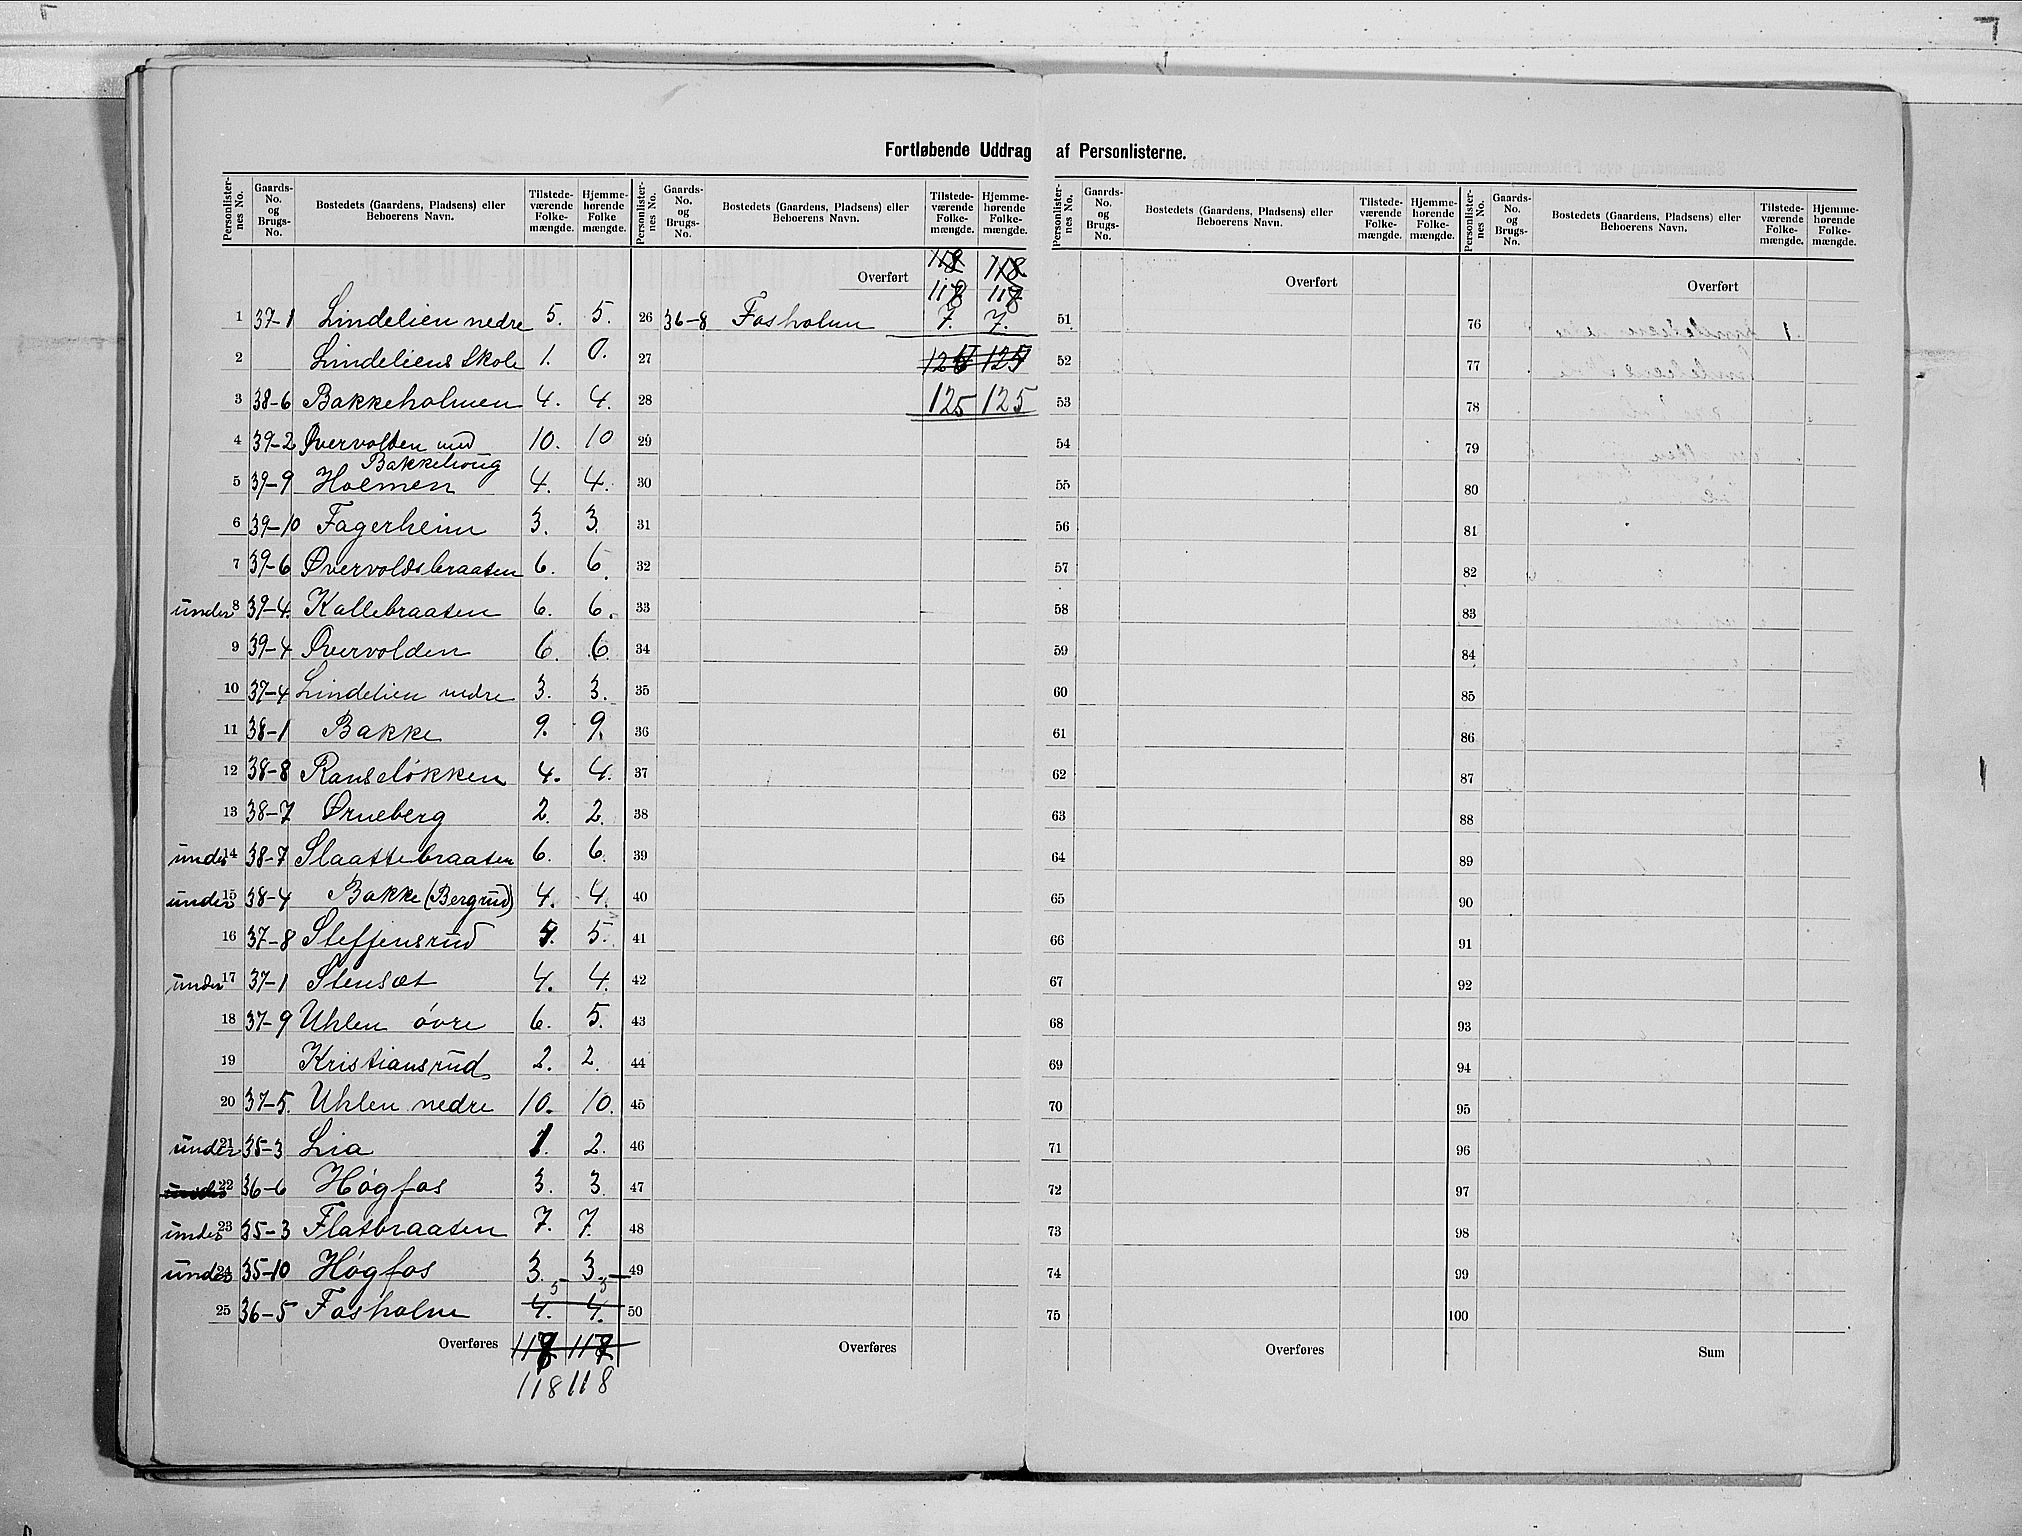 Fortløbende Uddrag af Personlisterne.
Personlister-nes No. | Gaards-No. og Brugs-No. | Bostedets (Gaardens, Pladsens) eller Beboerens Navn. | Tilstede-værende Folke-mængde. | Hjemme-hørende Folke mængde.
1 37–1 Lindelien nedre 5. 5.
2 Lindeliens Skole 1. 0.
3 38–6 Bakkeholmen 4. 4.
4 39–2 Øvervolden med 10. 10
Bakkehoug
5 39–9 Holmen 4. 4.
6 39–10 Fagerheim 3. 3.
7 39–6 Øvervoldsbraaten 6. 6.
under 8 39–4. Kallebraaten 6. 6.
9 39–4 Øvervolden 6. 6.
10 37–4 Lindelien nedre 3. 3.
11 38–1 Bakke 9. 9.
12 38–8 Ranseløkken 4. 4.
13 38–7 Ørneberg 2. 2.
under 14 38–7 Slaattebraaten 6. 6.
under 15 38–4 Bakke (Bergrud) 4. 4.
16 37–8 Steffensrud 5. 5.
under 17 37–1 Stensæt 4. 4.
18 37–9 Uhlen øvre 6. 5.
19 Kristiansrud 2. 2.
20 37–5. Uhlen nedre 10. 10.
under 21 35–3 Lia 1. 2.
under 22 36–6 Høgfos 3. 3.
under 23 35–3 Flatbraaten 7. 7.
under 24 35–10 Høgfos 3. 3.
5 5
25 36–5 Fosholm 4. 4.
Overføres
118 118
Personlister-nes No. | Gaards-No. og Brugs-No. | Bostedets (Gaardens, Pladsens) eller Beboerens Navn. | Tilstede-værende Folke-mængde. | Hjemme-hørende Folke-mængde.
118 118.
Overført 118 118
26 36–8 Fosholm 7. 7.
27 125 125
28 125 125
29
30
31
32
33
34
35
36
37
38
39
40
41
42
43
44
45
46
47
48
49
50
Overføres
Personlister-nes No. | Gaards-No. og Brugs-No. | Bostedets (Gaardens, Pladsens) eller Beboerens Navn. | Tilstede-værende Folke-mængde. | Hjemme-hørende Folke-mængde.
Overført
51
52
53
54
55
56
57
58
59
60
61
62
63
64
65
66
67
68
69
70
71
72
73
74
75
Overføres
Personlister-nes No. | Gaards-No. og Brugs-No. | Bostedets (Gaardens, Pladsens) eller Beboerens Navn. | Tilstede-værende Folke-mængde. | Hjemme-hørende Folke-mængde.
Overført
76
77
78
79
80
81
82
83
84
85
86
87
88
89
90
91
92
93
94
95
96
97
98
99
100
Sum